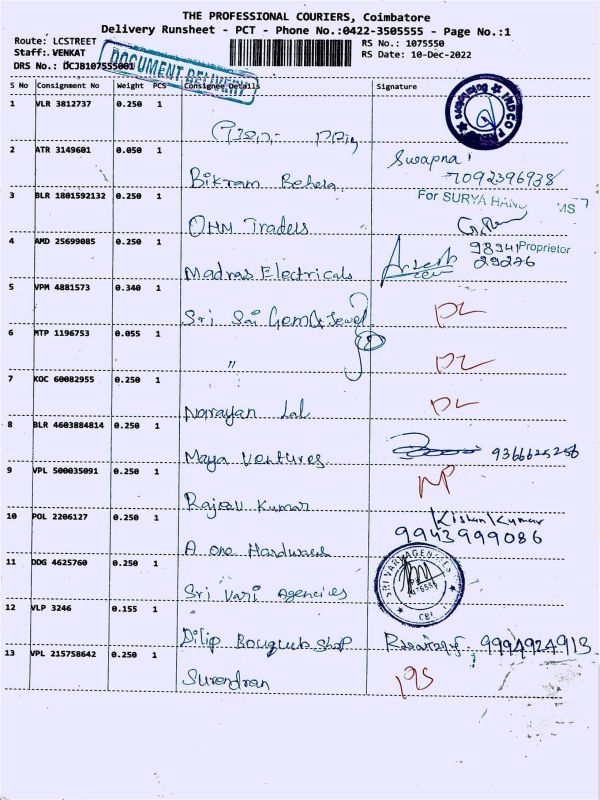 THE PROFESSIONAL COURIERS, Coimbatore
Delivery Runsheet - PCT - Phone No.:0422-3505555 - Page No.:1
Route: LCSTREET
RS No.: 1075550
Staff: VENKAT
RS Date: 10-Dec-2022
DRS No.: DCJB107555001
DOCUMENT DELIVERY
S No Consignment No Weight PCS Consignee Details Signature
1 VLR 3812737 0.250 1
INDCO
2 ATR 3149601 0.050 1 Swapna
7092396938
Bikram Behera
3 BLR 1801592132 0.250 1 For SURYA
OHM Traders
4 AMD 25699085 0.250 1 98941 Proprietor
29276
Madras Electricals
5 VPM 4881573 0.340 1
Sri Sai Gem & Jewel
DL
6 MTP 1196753 0.055 1
" DL
7 KOC 60082955 0.250 1
Narayan Lal DL
8 BLR 4603884814 0.250 1
Maya Ventures 9366625256
9 VPL 500035091 0.250 1
Rajeev Kumar
10 POL 2206127 0.250 1 Kishan Kumar
9943999086
A one Hardware
11 DDG 4625760 0.250 1
Sri Vari Agencies
SRI VARI AGENCIES
CBE
12 VLP 3246 0.155 1
Dilip Bouquet Shop 9994924913
13 VPL 215758642 0.250 1
Surendran